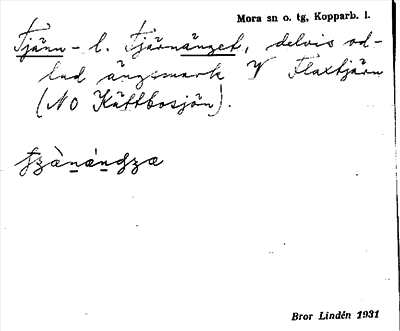 Mora sn o. tg, Kopparb. l.
Tjänn- l. Tjärnänget, delvis od-
lad ängsmark V Flaxtjärn
(NO Kättbosjön).
Bror Lindén 1931